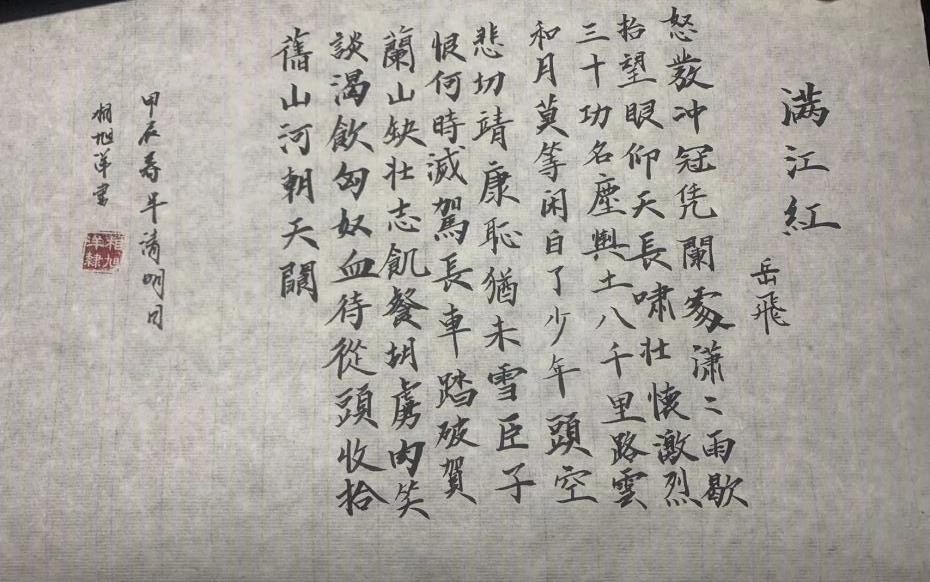 满江紅
岳飛
怒發冲冠凭闌處潇二雨歇
抬望眼仰天長嘯壮懷激烈
三十功名塵與土八千里路雲
和月莫等闲白了少年頭空
悲切靖康恥猶未雪臣子
恨何時滅駕長車踏破賀
蘭山缺壮志飢餐胡虜肉笑
談渴飲匈奴血待從頭收拾
舊山河朝天闕
甲辰春年清明日
相旭洋書
相旭洋隸